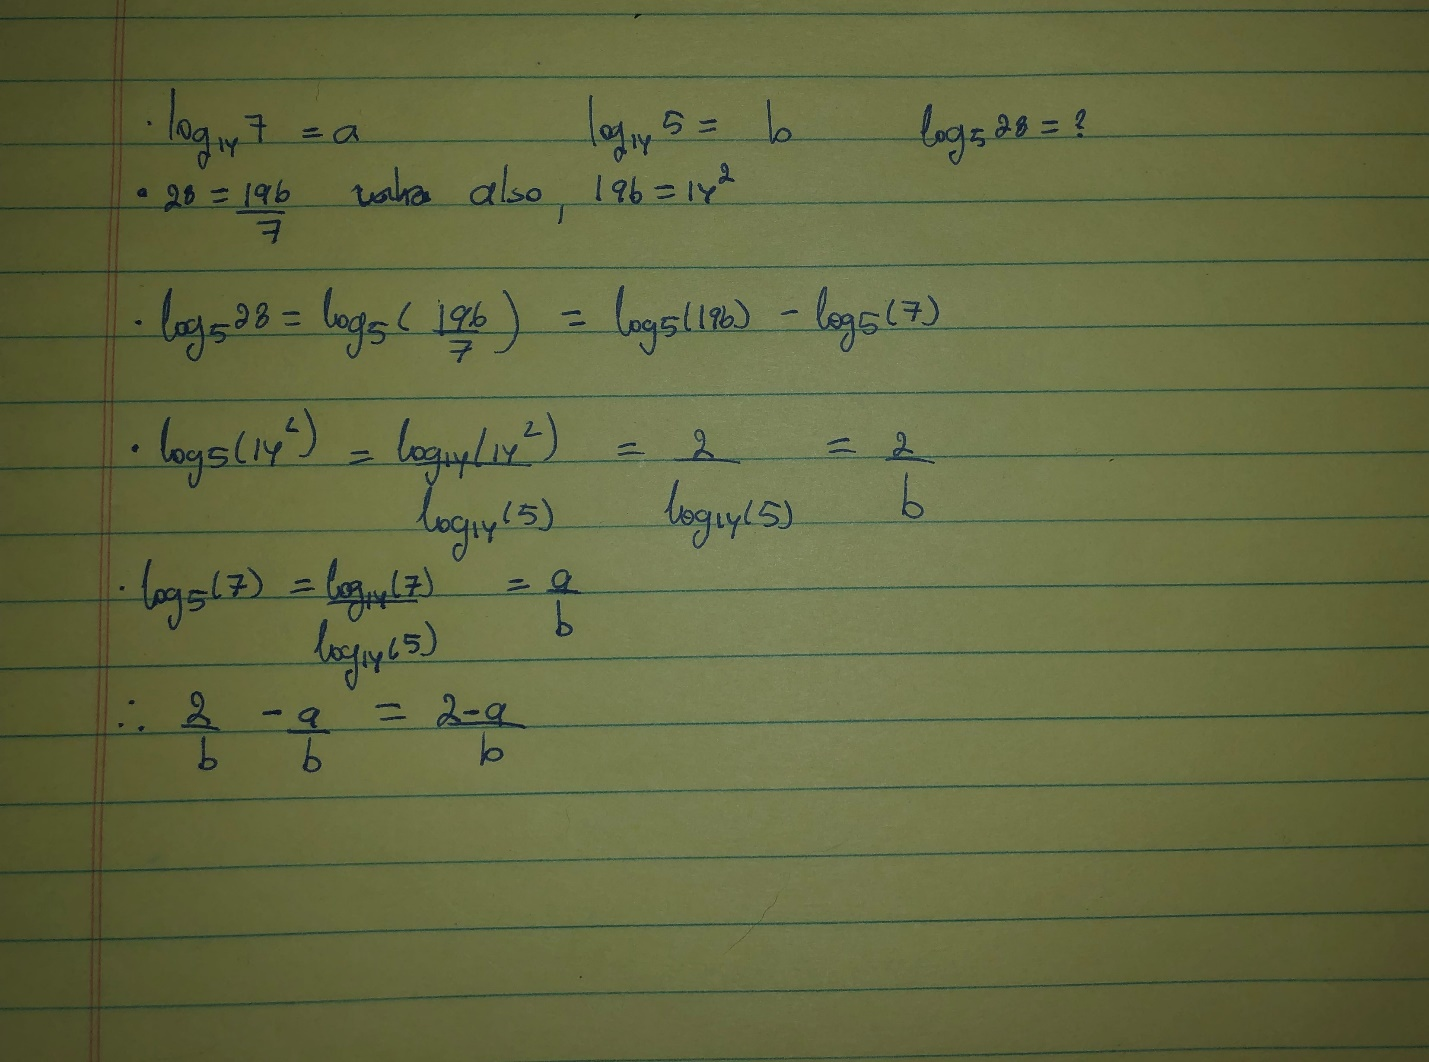 · log₁₄ 7 = a log₁₄ 5 = b log₅ 28 = ?
· 28 = 196/7 also, 196 = 14²
· log₅ 28 = log₅ (196/7) = log₅(196) - log₅(7)
· log₅(14²) = log₁₄(14²)/log₁₄(5) = 2/log₁₄(5) = 2/b
· log₅(7) = log₁₄(7)/log₁₄(5) = a/b
∴ 2/b - a/b = 2-a/b